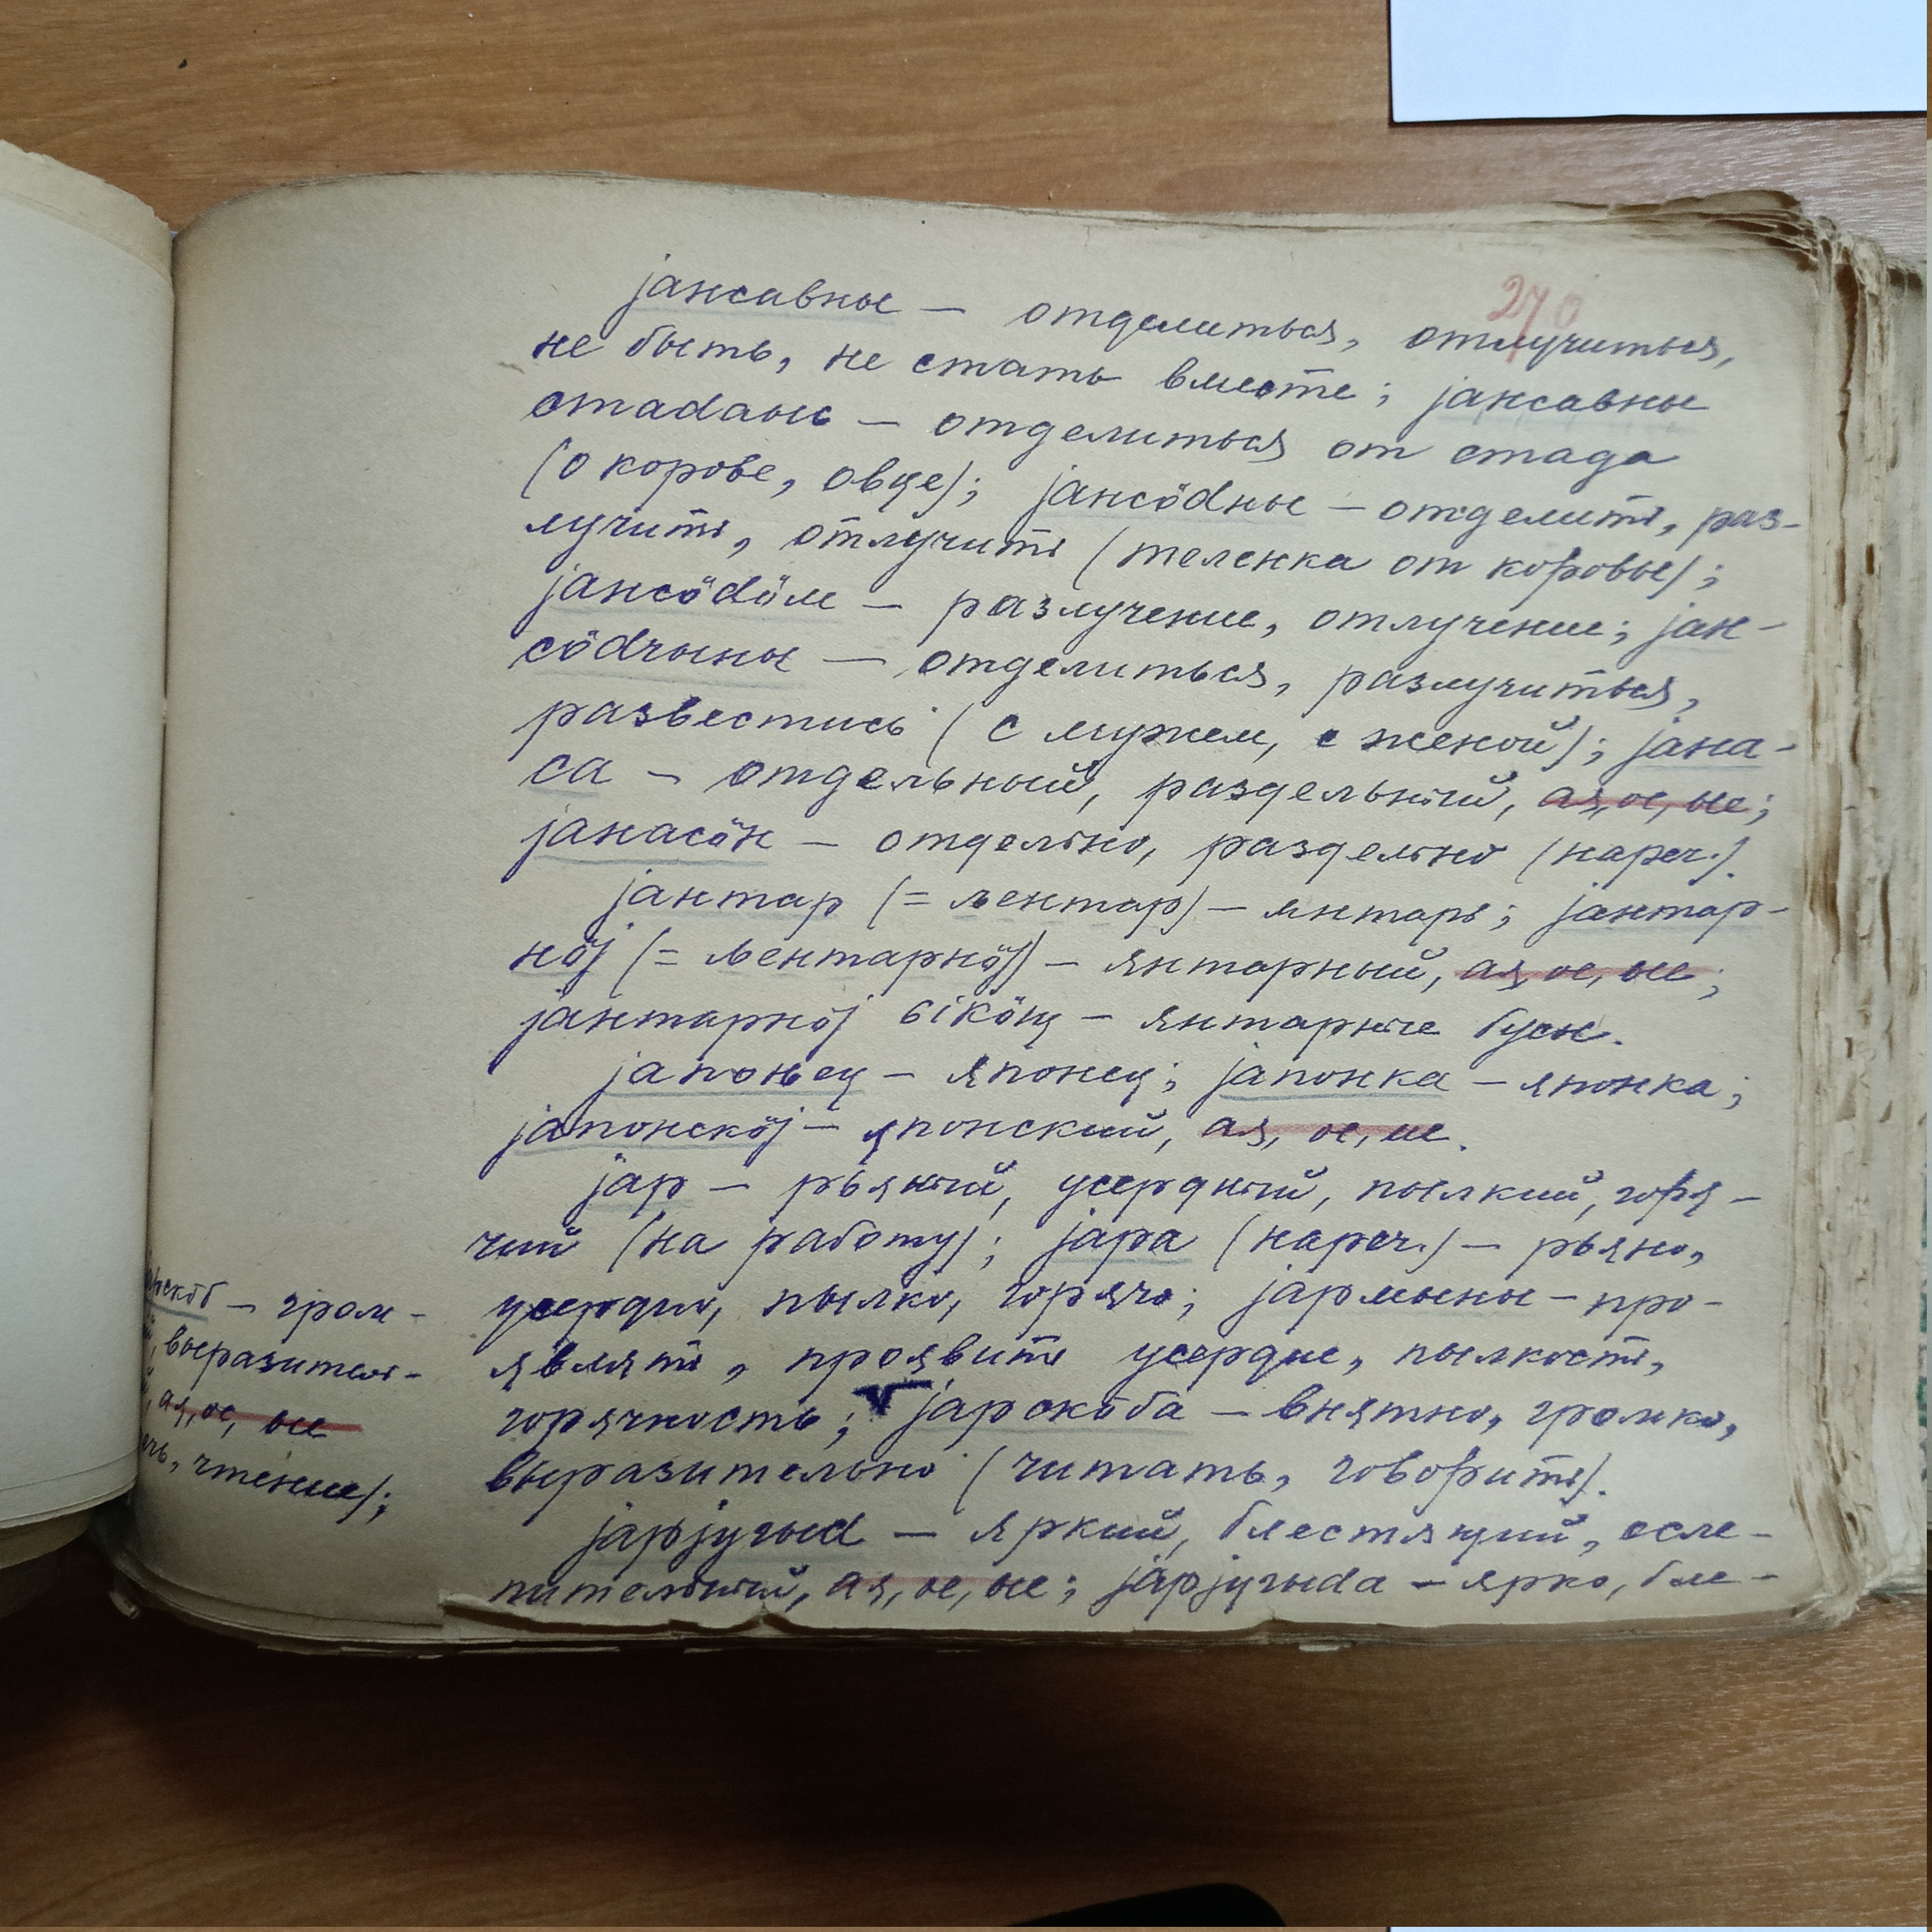 270
јансавны — отделиться, отлучиться,
не быть, не стать вместе; јансавны
стадаыс — отделиться от стада
(о корове, овце); јансӧdны — отделить, раз-
лучить, отлучить (теленка от коровы);
јансӧdӧм — разлучение, отлучение; јан-
сӧdчыны — отделиться, разлучиться,
развестись (с мужем, с женой); јана-
са — отдельный, раздельный, ая, ое, ые;
јанасӧн — отдельно, раздельно (нареч.).
јантар (= љентар) — янтарь; јантар-
нӧј (= љентарнӧј) — янтарный, ая, ое, ые;
јантарнӧј сікӧщ — янтарные бусы.
јапоњец — японец; јапонка — японка;
јапонскӧј — японский, ая, ое, ие.
јар — рьяный, усердный, пылкий, горя-
чий (на работу); јара (нареч.) — рьяно,
усердно, пылко, горячо; јармыны — про-
являть, проявить усердие, пылкость,
горячность; јарскӧба — внятно, громко,
выразительно (читать, говорить).
јарјугыd — яркий, блестящий, осле-
пительный, ая, ое, ые; јарјугыdа — ярко, бле-
рскӧб — гром-
выразитель-
ая, ое, ые
чтение);